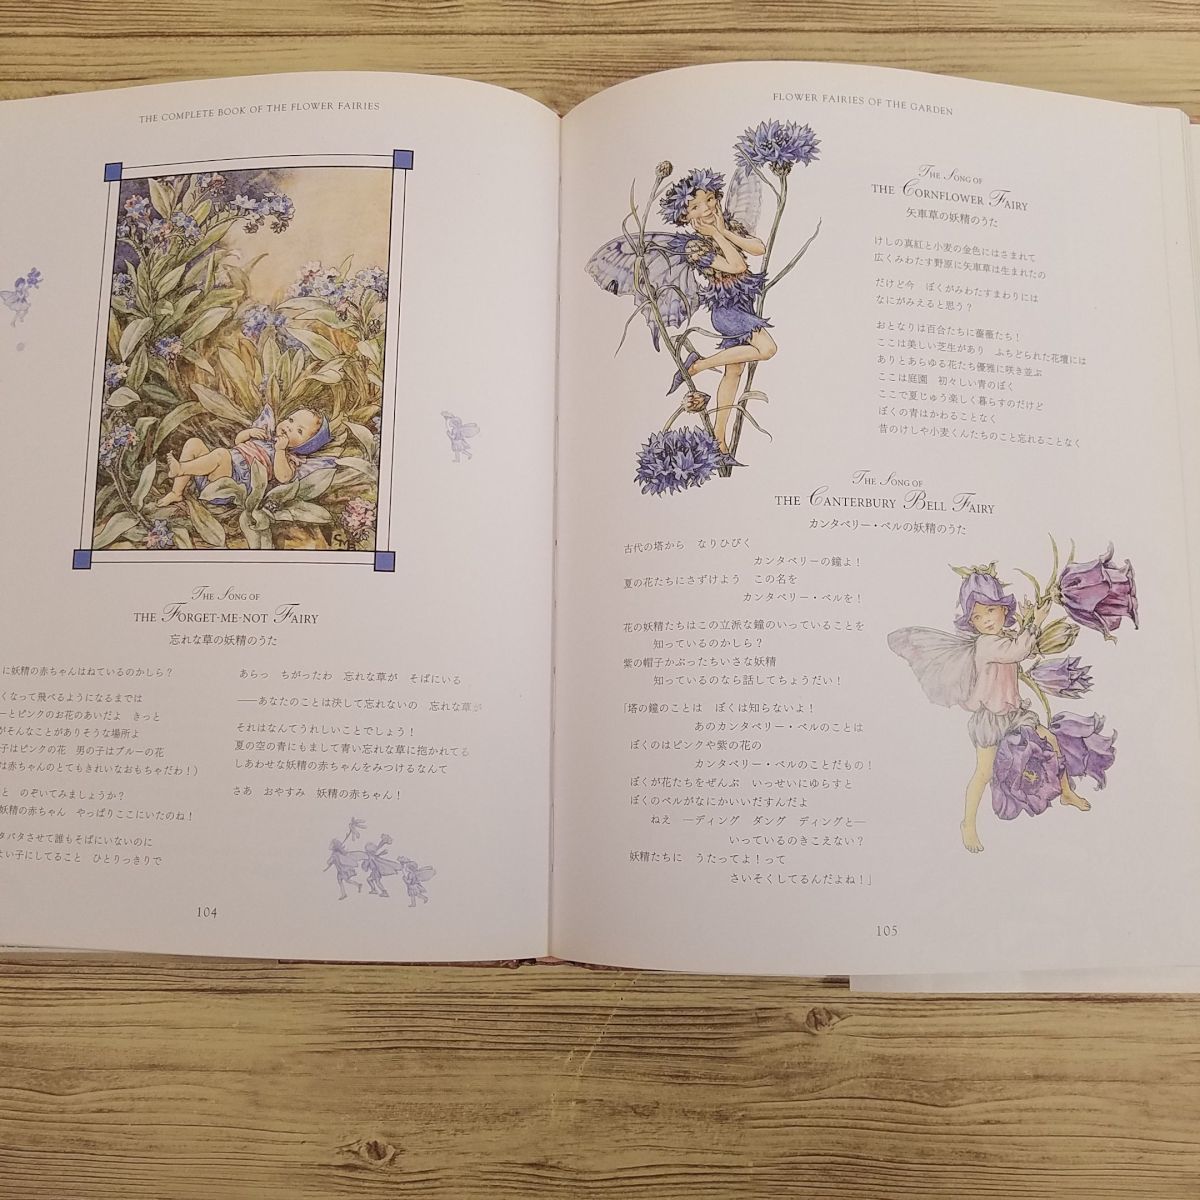 THE COMPLETE BOOK OF THE FLOWER FAIRIES
THE SONG OF
THE FORGET-ME-NOT FAIRY
忘れな草の妖精のうた
に妖精の赤ちゃんはねているのかしら？
くなって飛べるようになるまでは
ーとピンクのお花のあいだよ　きっと
がそんなことがありそうな場所よ
子はピンクの花　男の子はブルーの花
は赤ちゃんのとてもきれいなおもちゃだわ！）
と　のぞいてみましょうか？
妖精の赤ちゃん　やっぱりここにいたのね！
タバタさせて誰もそばにいないのに
よい子にしてること　ひとりっきりで
あらっ　ちがったわ　忘れな草が　そばにいる
──あなたのことは決して忘れないの　忘れな草が
それはなんてうれしいことでしょう！
夏の空の青にもまして青い忘れな草に抱かれてる
しあわせな妖精の赤ちゃんをみつけるなんて
さあ　おやすみ　妖精の赤ちゃん！
104
FLOWER FAIRIES OF THE GARDEN
THE SONG OF
THE CORNFLOWER FAIRY
矢車草の妖精のうた
けしの真紅と小麦の金色にはさまれて
広くみわたす野原に矢車草は生まれたの
だけど今　ぼくがみわたすまわりには
なにがみえると思う？
おとなりは百合たちに薔薇たち！
ここは美しい芝生があり　ふちどられた花壇には
ありとあらゆる花たち優雅に咲き並ぶ
ここは庭園　初々しい青のぼく
ここで夏じゅう楽しく暮らすのだけど
ぼくの青はかわることなく
昔のけしや小麦くんたちのこと忘れることなく
THE SONG OF
THE CANTERBURY BELL FAIRY
カンタベリー・ベルの妖精のうた
古代の塔から　なりひびく
カンタベリーの鐘よ！
夏の花たちにさずけよう　この名を
カンタベリー・ベルを！
花の妖精たちはこの立派な鐘のいっていることを
知っているのかしら？
紫の帽子かぶったちいさな妖精
知っているのなら話してちょうだい！
「塔の鐘のことは　ぼくは知らないよ！
あのカンタベリー・ベルのことは
ぼくのはピンクや紫の花の
カンタベリー・ベルのことだもの！
ぼくが花たちをぜんぶ　いっせいにゆらすと
ぼくのベルがなにかいいだすんだよ
ねえ　─ディング　ダング　ディングと─
いっているのきこえない？
妖精たちに　うたってよ！って
さいそくしてるんだよね！」
105